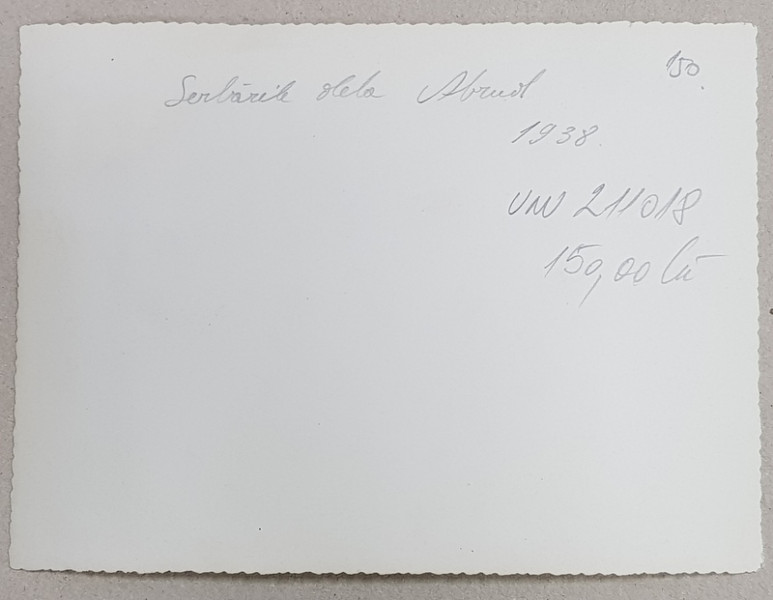 150
Serbările dela Abrud
1938
UNV 211018
150,00 lei